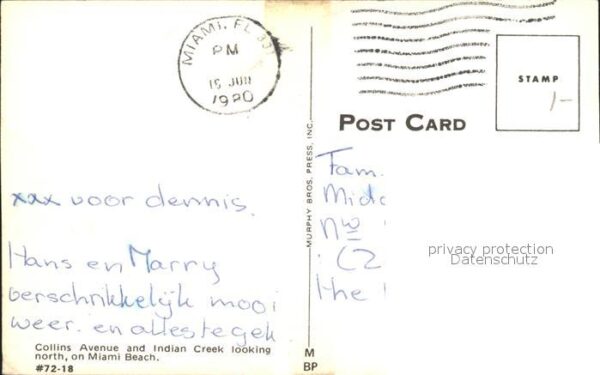 MIAMI, FL 331
PM
15 JUN
1980
POST CARD
STAMP
1-
xxx voor dennis.
Hans en Marry
verschrikkelijk mooi
weer. en alles te gek
Collins Avenue and Indian Creek looking
north, on Miami Beach.
#72-18
MURPHY BROS. PRESS, INC.
M
BP
Fam.
Midd
nw
(2
the
privacy protection
Datenschutz